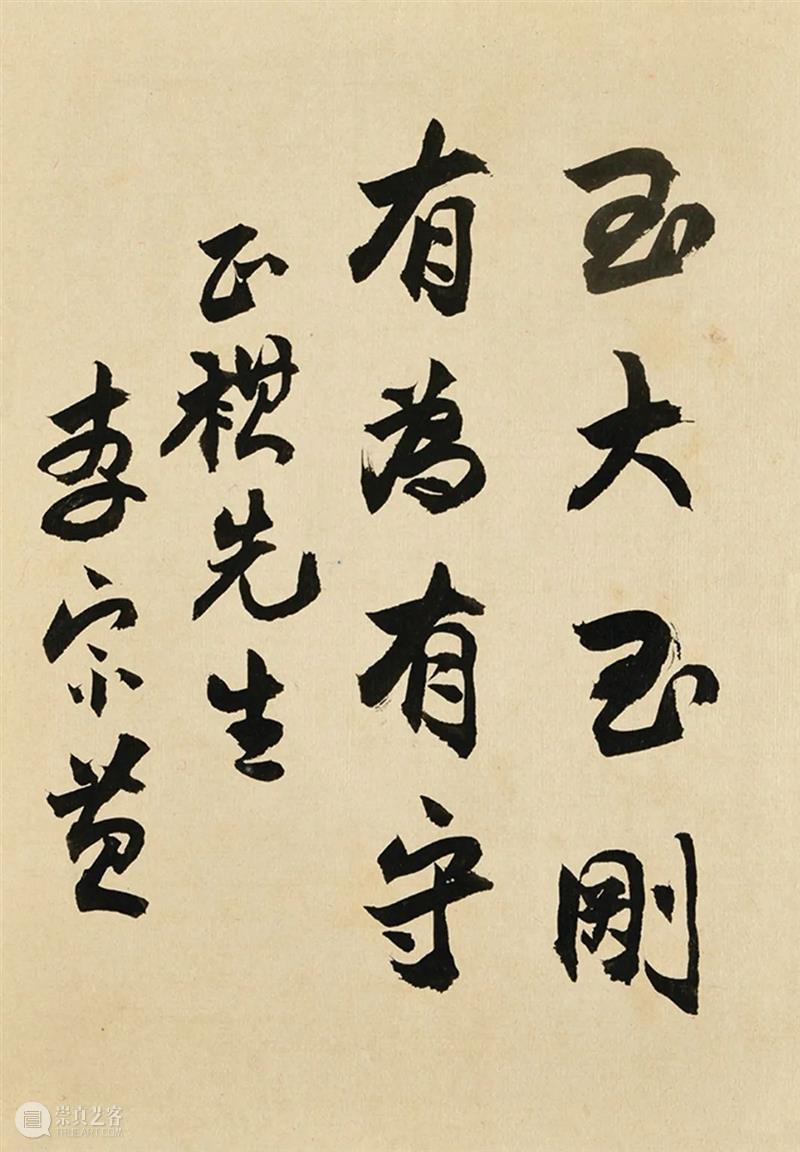 至大至剛
有為有守
正祺先生
李宗黃
崇真艺客
TRUEART.COM